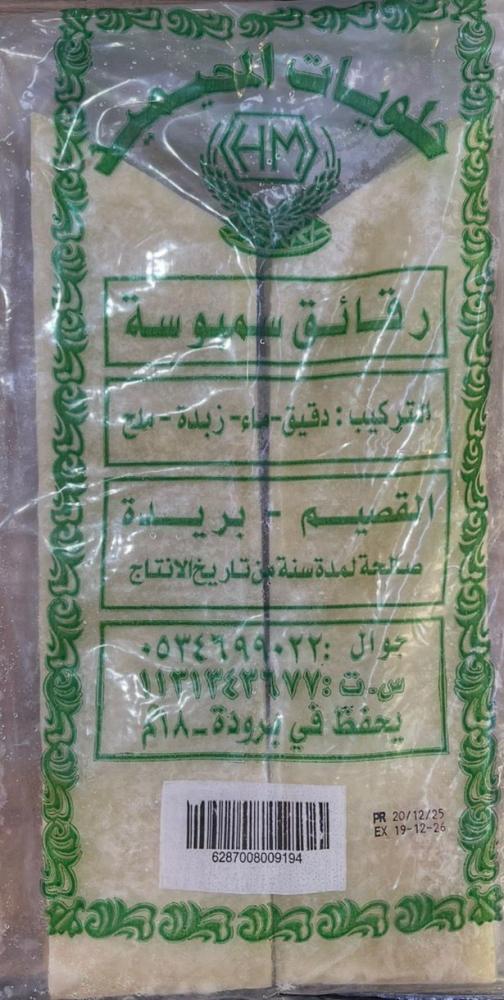 حلويات المحيميد
HM
رقائق سمبوسة
التركيب : دقيق-ماء- زبدة - ملح
القصيم - بريدة
صالحة لمدة سنة من تاريخ الانتاج
جوال : ٠٥٣٤٦٩٩٠٢٢
س.ت : ١١٣١٣٤٣٦٧٧
يحفظ في برودة -١٨م
6287008009194
PR 20/12/25
EX 19-12-26